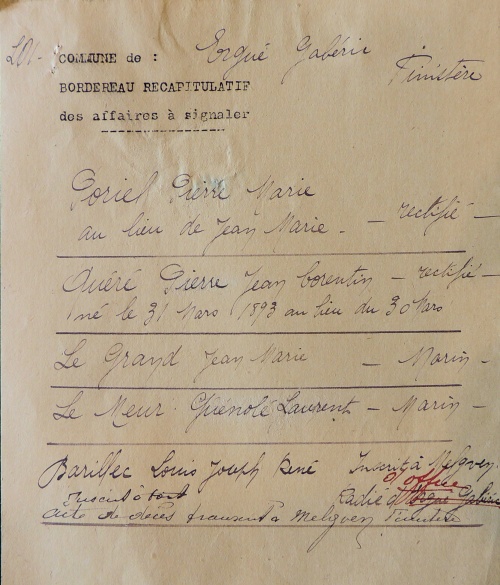 COMMUNE de : Ergué Gabéric
Finistère
BORDEREAU RECAPITULATIF
des affaires à signaler
Goriel Pierre Marie
au lieu de Jean Marie. — rectifié —
Quéré Pierre Jean Corentin — rectifié —
né le 31 Mars 1893 au lieu du 30 Mars
Le Grand Jean Marie — Marin —
Le Meur Guénolé Laurent — Marin —
Barillec Louis Joseph René Inscrit à Melgven.
inscrit à tort Radié d'office Ergué Gabéric
acte de décès transcrit à Melgven Finistère